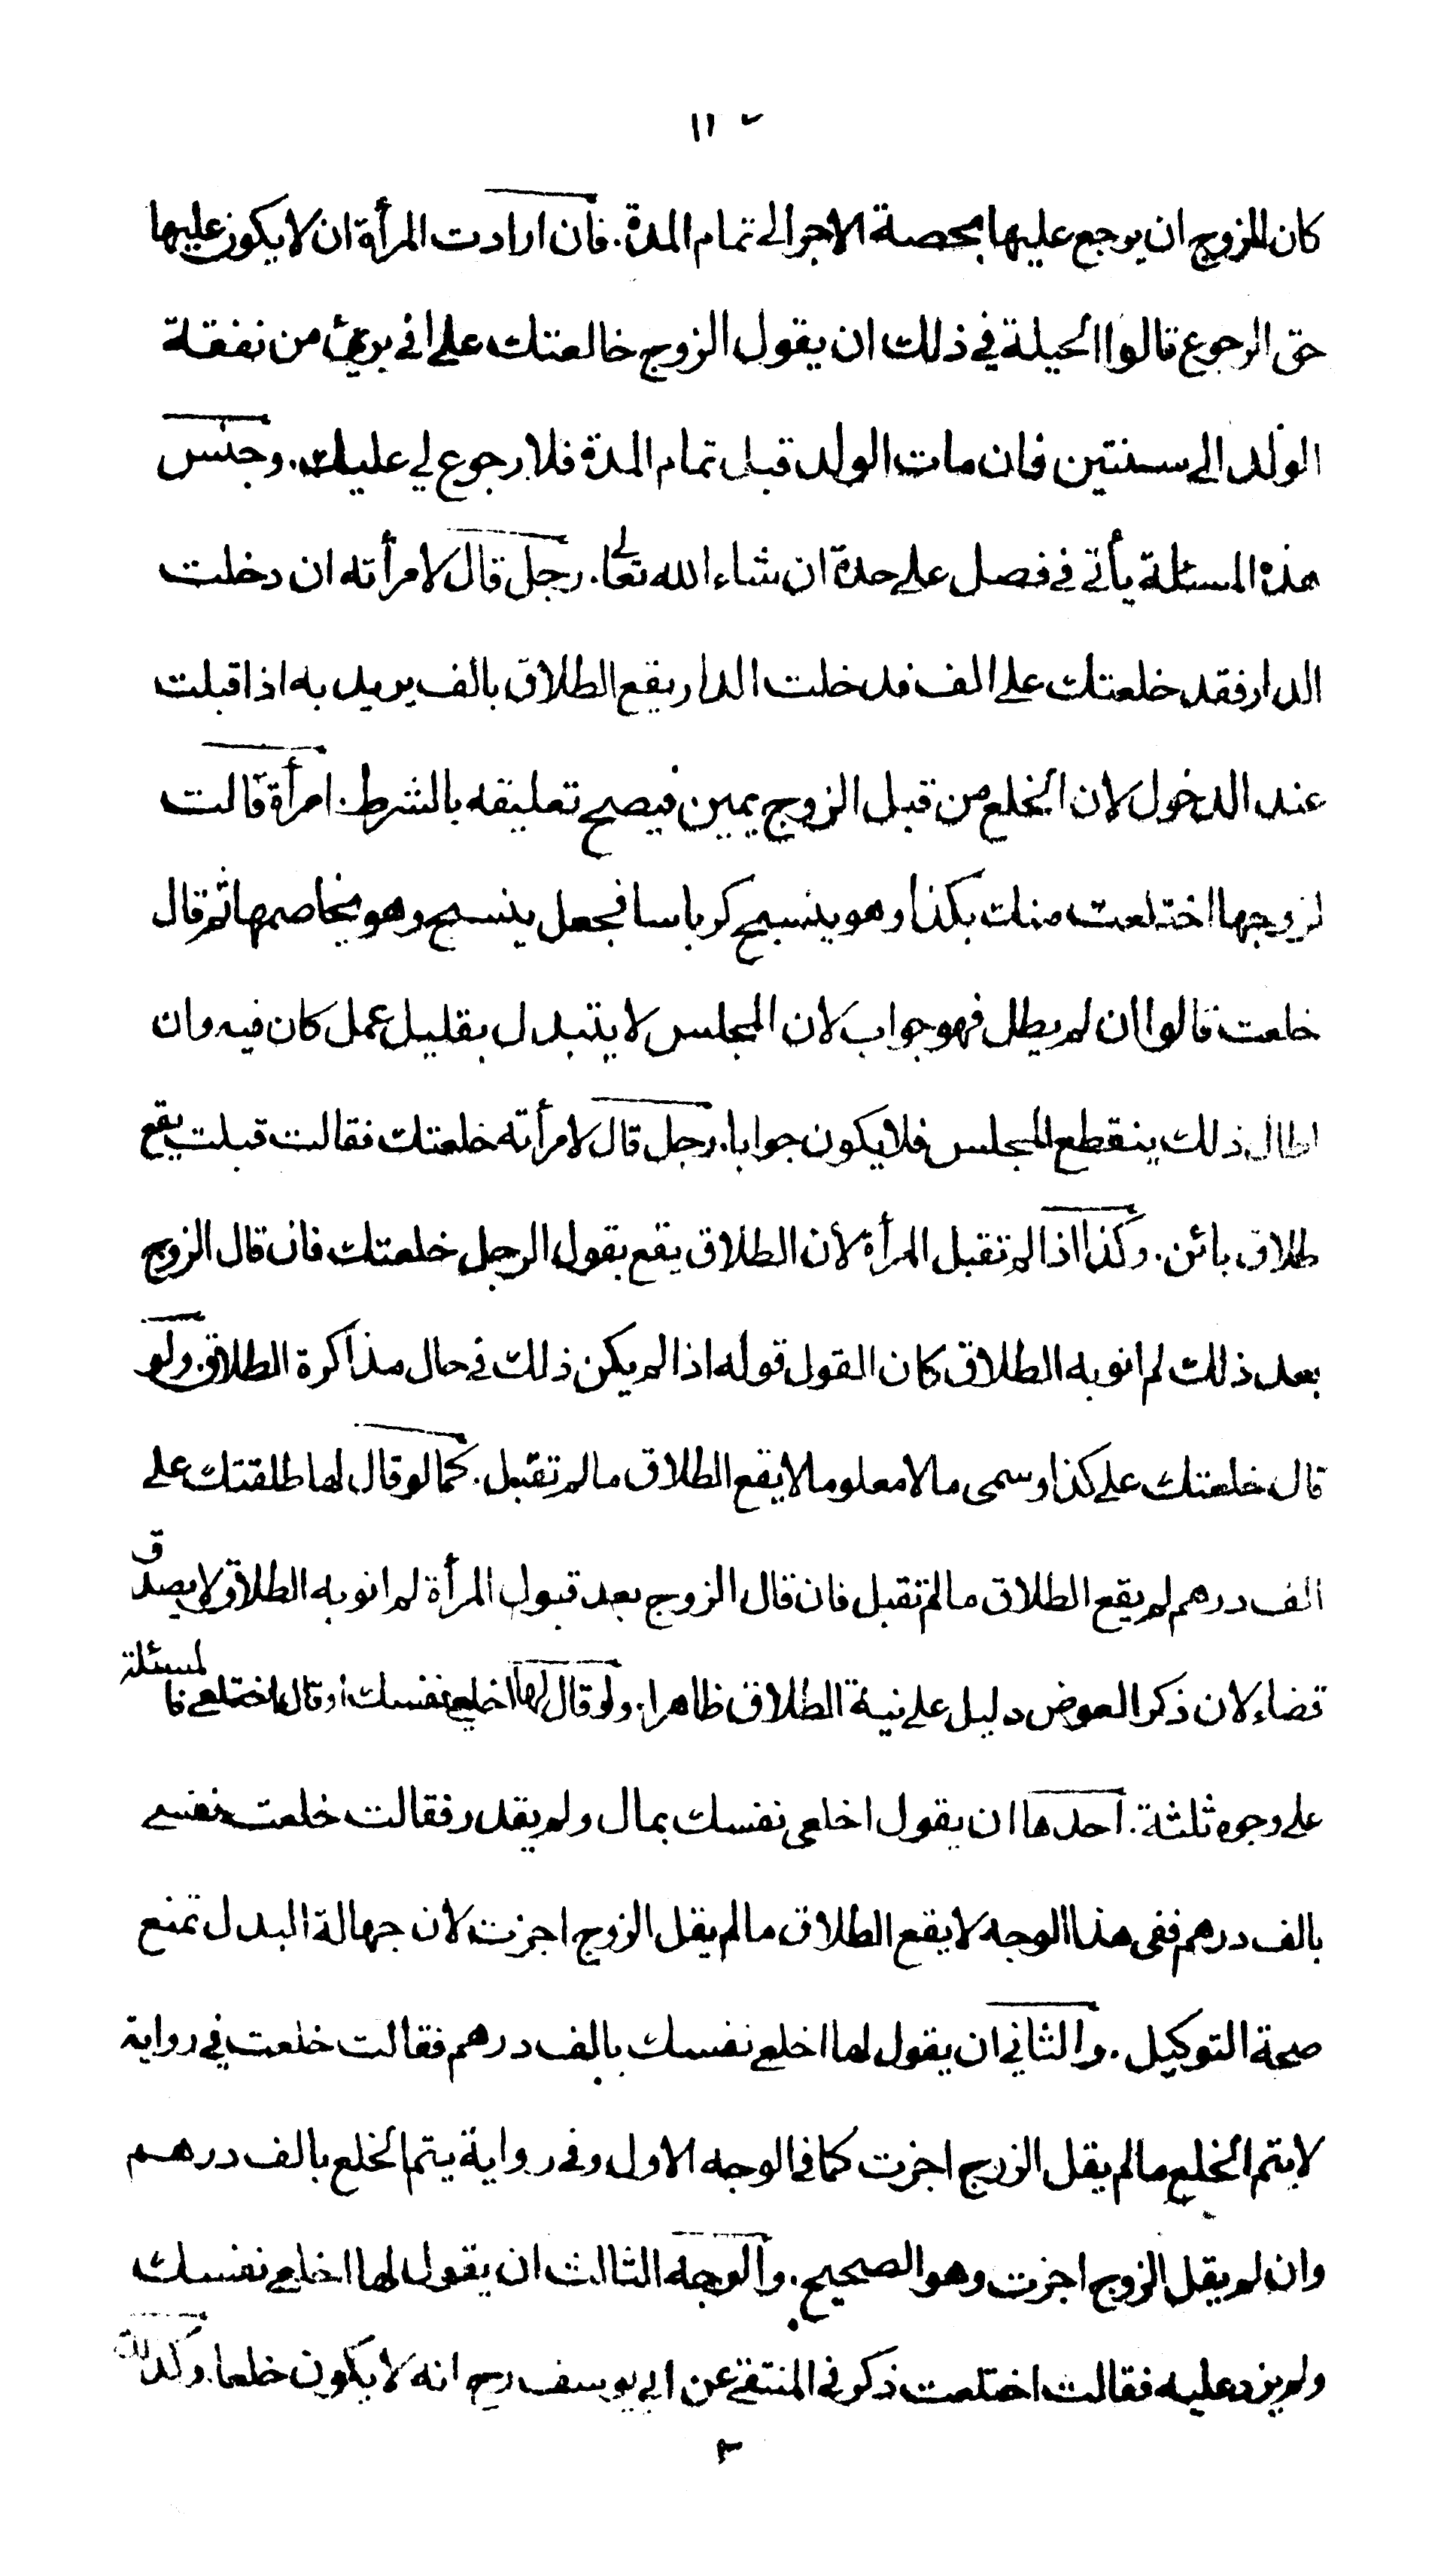 ١١
كان للزوج ان يرجع عليها بحصة الاجر الى تمام المدة. فان ارادت المرأة ان لا يكون عليها
حق الرجوع قالوا الحيلة في ذلك ان يقول الزوج خالعتك على اني بريئ من نفقة
الولد الى سنتين فان مات الولد قبل تمام المدة فلا رجوع لي عليك. وجنس
هذه المسئلة يأتي في فصل على حدة ان شاء الله تعالى. رجل قال لامرأته ان دخلت
الدار فقد خلعتك على الف فدخلت الدار يقع الطلاق بالف يريد به اذا قبلت
عند الدخول لان الخلع من قبل الزوج يمين فيصح تعليقه بالشرط. امرأة قالت
لزوجها اختلعت منك بكذا وهو ينسج كرباسا فجعل ينسج وهو يخاصمها ثم قال
خلعت قالوا ان لم يطل فهو جواب لان المجلس لا يتبدل بقليل عمل كان فيه وان
اطال ذلك ينقطع المجلس فلا يكون جوابا. رجل قال لامرأته خلعتك فقالت قبلت يقع
طلاق بائن. وكذا اذا لم تقبل المرأة لان الطلاق يقع بقول الرجل خلعتك فان قال الزوج
بعد ذلك لم انو به الطلاق كان القول قوله اذا لم يكن ذلك في حال مذاكرة الطلاق. ولو
قال خلعتك على كذا وسمى مالا معلوما لا يقع الطلاق ما لم تقبل. كما لو قال لها طلقتك على
الف درهم لم يقع الطلاق ما لم تقبل فان قال الزوج بعد قبول المرأة لم انو به الطلاق لا يصدق
قضاء لان ذكر العوض دليل على نية الطلاق ظاهرا. ولو قال لها اخلعي نفسك او قال اختلعي فالمسئلة
على وجوه ثلثة. احدها ان يقول اخلعي نفسك بمال ولم يقدر فقالت خلعت نفسي
بالف درهم ففي هذا الوجه لا يقع الطلاق ما لم يقل الزوج اجزت لان جهالة البدل تمنع
صحة التوكيل. والثاني ان يقول لها اخلعي نفسك بالف درهم فقالت خلعت في رواية
لا يتم الخلع ما لم يقل الزوج اجزت كما في الوجه الاول وفي رواية يتم الخلع بالف درهم
وان لم يقل الزوج اجزت وهو الصحيح. والوجه الثالث ان يقول لها اخلعي نفسك
ولم يزد عليه فقالت اختلعت ذكر في المنتقى عن ابي يوسف رح انه لا يكون خلعا. وكذلك